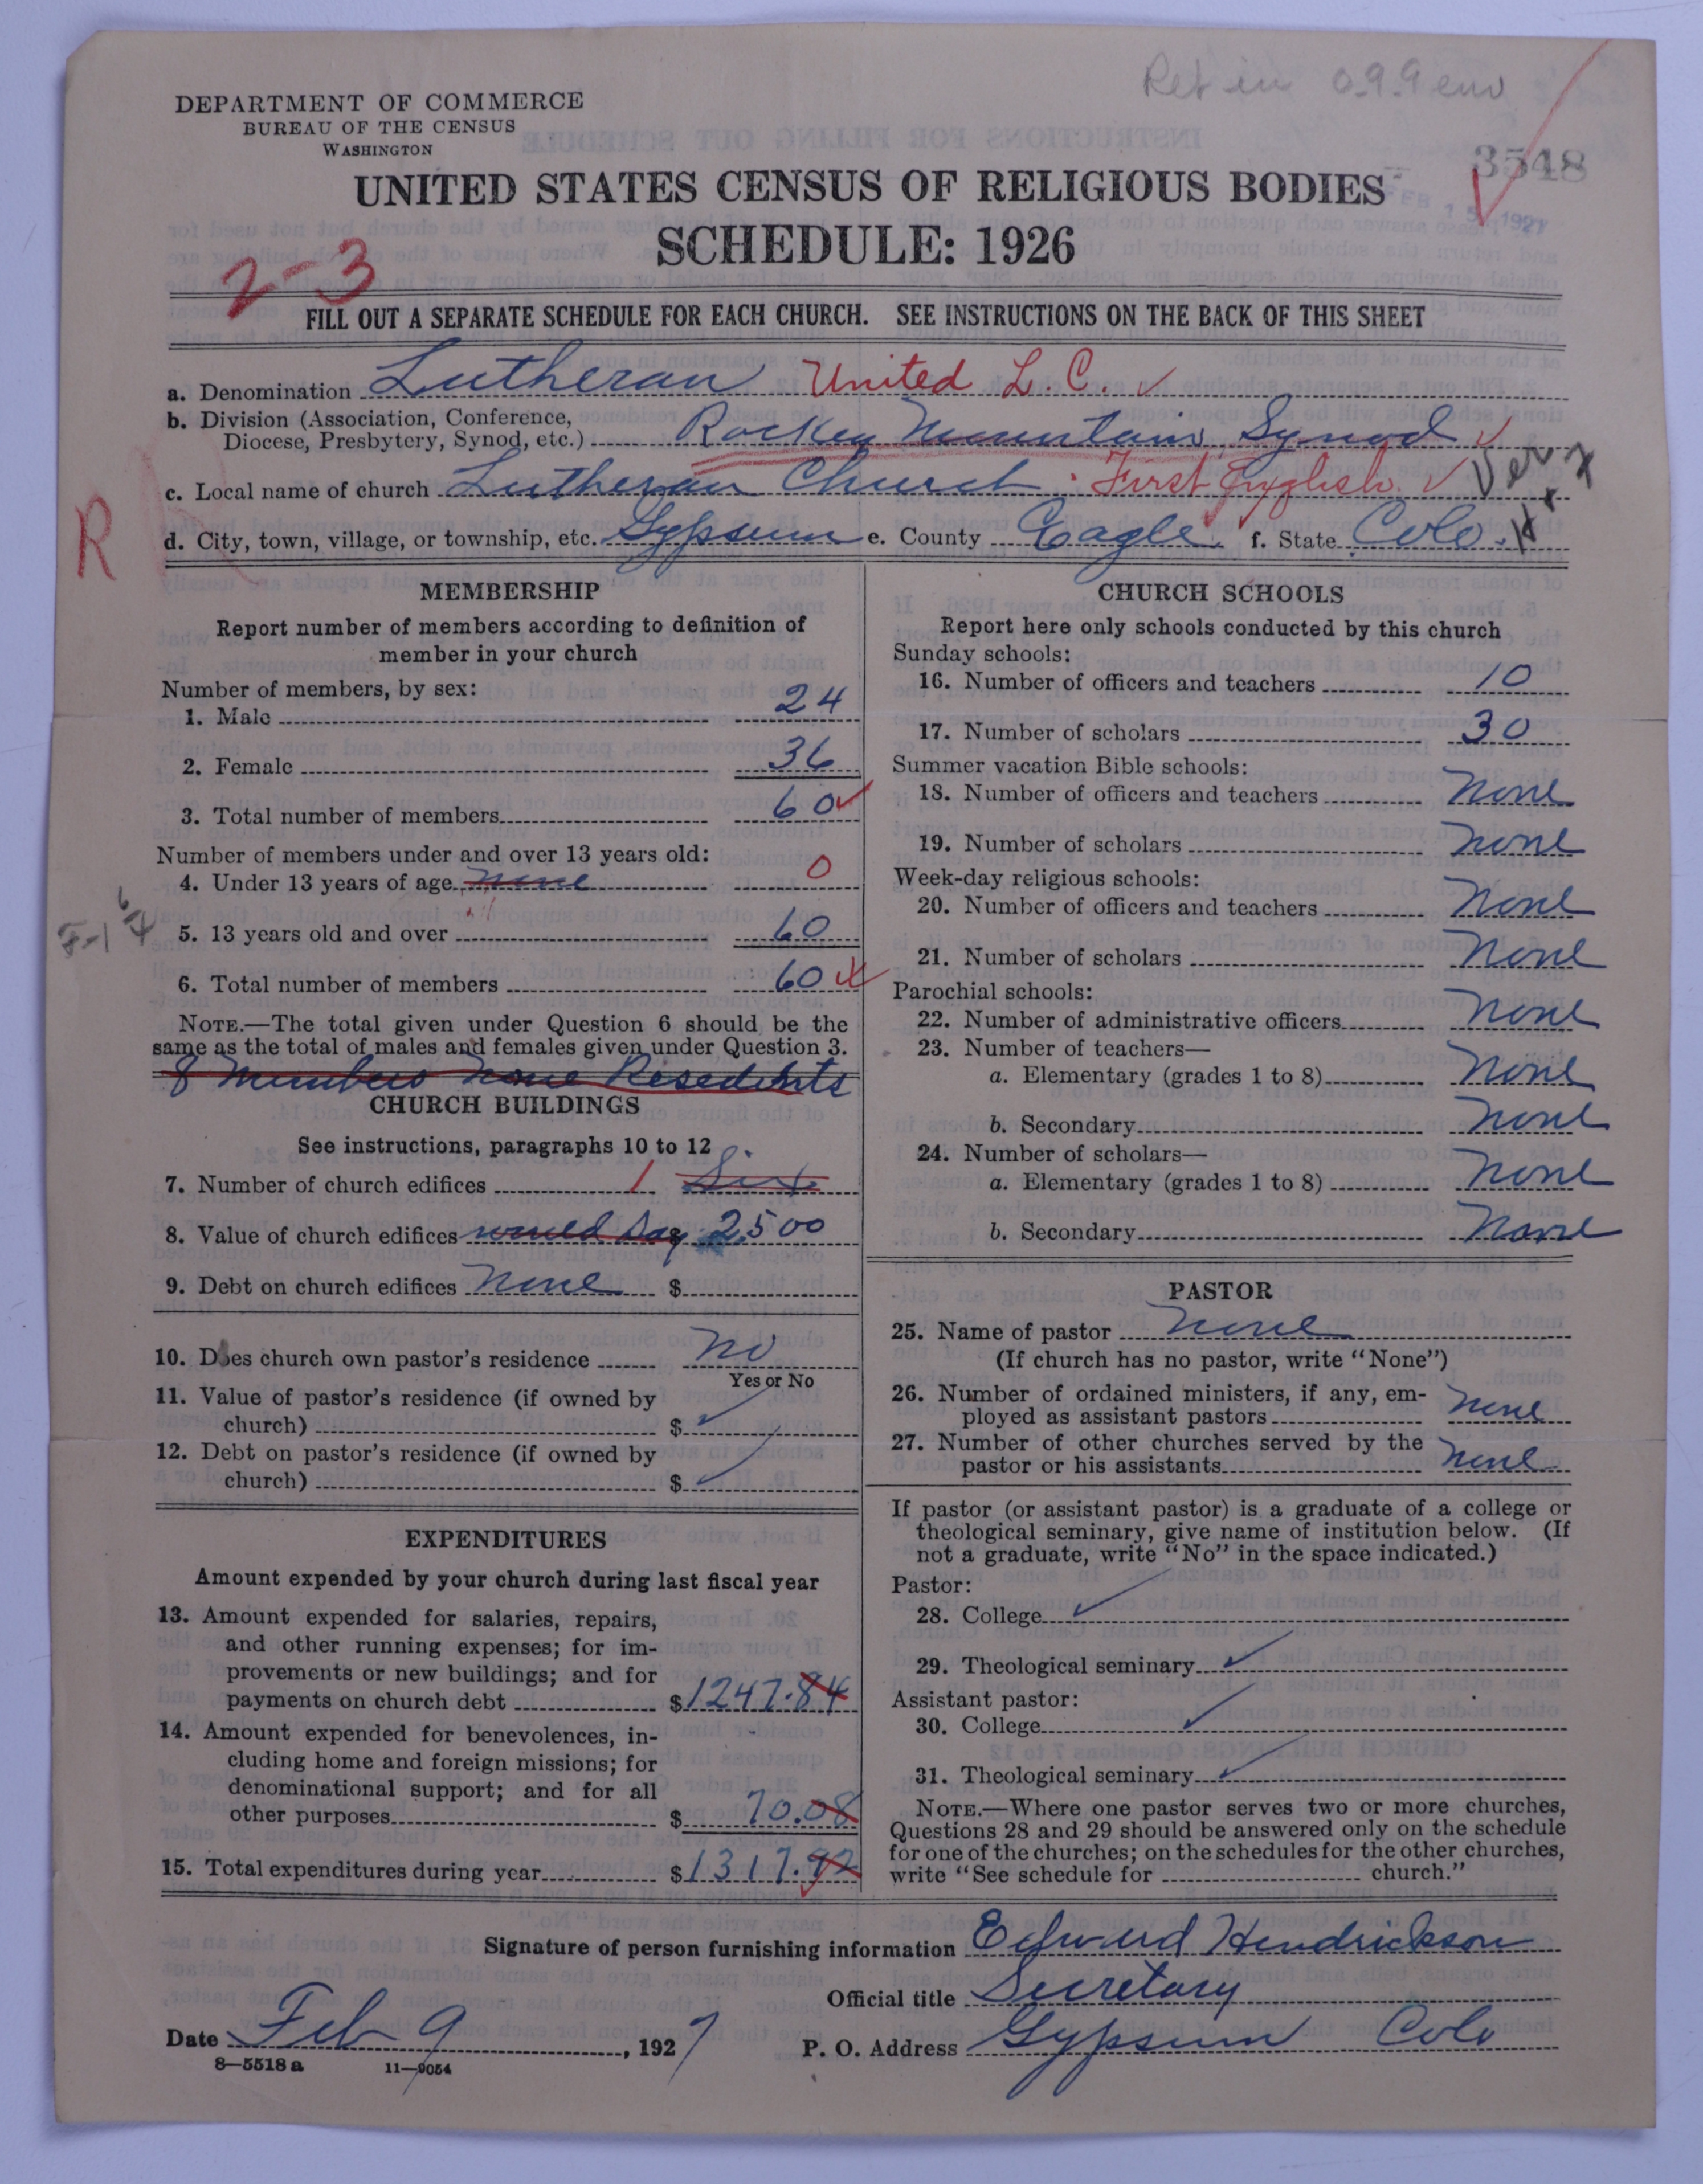 Ret in 099 env
DEPARTMENT OF COMMERCE
BUREAU OF THE CENSUS
WASHINGTON
3548
FEB 15 1927
UNITED STATES CENSUS OF RELIGIOUS BODIES
SCHEDULE: 1926
2-3
FILL OUT A SEPARATE SCHEDULE FOR EACH CHURCH. SEE INSTRUCTIONS ON THE BACK OF THIS SHEET
a. Denomination Lutheran United L. C.
b. Division (Association, Conference,
Diocese, Presbytery, Synod, etc.) Rockey Mountain Synod
c. Local name of church Lutheran Church First English
d. City, town, village, or township, etc. Gypsum e. County Eagle f. State Colo.
R
MEMBERSHIP
Report number of members according to definition of
member in your church
Number of members, by sex:
1. Male 24
2. Female 36
3. Total number of members 60
Number of members under and over 13 years old:
4. Under 13 years of age none 0
5. 13 years old and over 60
6. Total number of members 60
NOTE.—The total given under Question 6 should be the
same as the total of males and females given under Question 3.
8 Members None Resedents
CHURCH BUILDINGS
See instructions, paragraphs 10 to 12
7. Number of church edifices 1 Six
8. Value of church edifices would say $ 2500
9. Debt on church edifices None $
10. Does church own pastor's residence no
Yes or No
11. Value of pastor's residence (if owned by
church) $
12. Debt on pastor's residence (if owned by
church) $
EXPENDITURES
Amount expended by your church during last fiscal year
13. Amount expended for salaries, repairs,
and other running expenses; for im-
provements or new buildings; and for
payments on church debt $1247.84
14. Amount expended for benevolences, in-
cluding home and foreign missions; for
denominational support; and for all
other purposes $ 70.08
15. Total expenditures during year $1317.92
CHURCH SCHOOLS
Report here only schools conducted by this church
Sunday schools:
16. Number of officers and teachers 10
17. Number of scholars 30
Summer vacation Bible schools:
18. Number of officers and teachers None
19. Number of scholars None
Week-day religious schools:
20. Number of officers and teachers None
21. Number of scholars None
Parochial schools:
22. Number of administrative officers None
23. Number of teachers—
a. Elementary (grades 1 to 8) None
b. Secondary None
24. Number of scholars—
a. Elementary (grades 1 to 8) None
b. Secondary None
PASTOR
25. Name of pastor None
(If church has no pastor, write "None")
26. Number of ordained ministers, if any, em-
ployed as assistant pastors None
27. Number of other churches served by the
pastor or his assistants None
If pastor (or assistant pastor) is a graduate of a college or
theological seminary, give name of institution below. (If
not a graduate, write "No" in the space indicated.)
Pastor:
28. College
29. Theological seminary
Assistant pastor:
30. College
31. Theological seminary
NOTE.—Where one pastor serves two or more churches,
Questions 28 and 29 should be answered only on the schedule
for one of the churches; on the schedules for the other churches,
write "See schedule for church."
Signature of person furnishing information Edward Hendrickson
Official title Secretary
Date Feb 9, 1927 P. O. Address Gypsum Colo
8—5518 a 11—9054